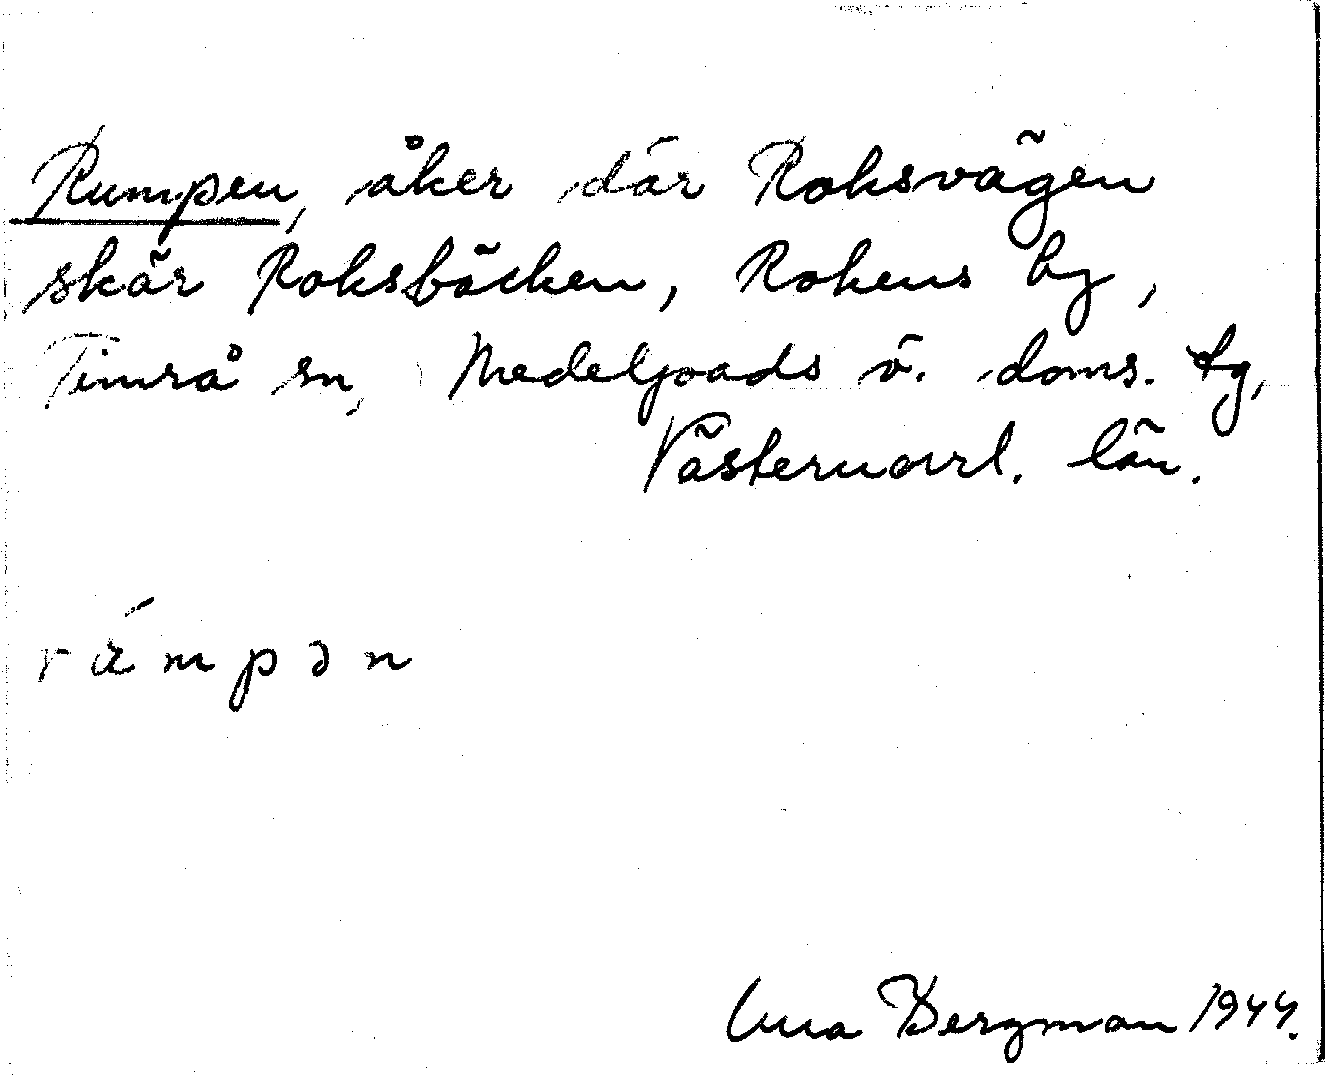 Rumpen, åker där Roksvägen
skär Roksbäcken, Rokens by,
Timrå sn, Medelpads ö. doms. tg,
Västernorrl. län.
Bergman 1944.